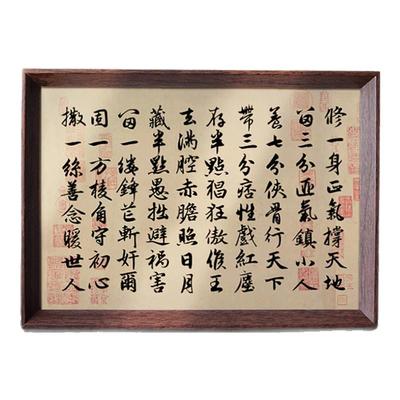 修一身正氣撐天地
留三分匪氣鎮小人
養七分俠骨行天下
帶三分痞性戲紅塵
存半點猖狂傲侯王
去滿腔赤膽照日月
藏半點愚拙避禍害
留一縷鋒芒斬奸爾
固一方棱角守初心
撒一絲善念暖世人